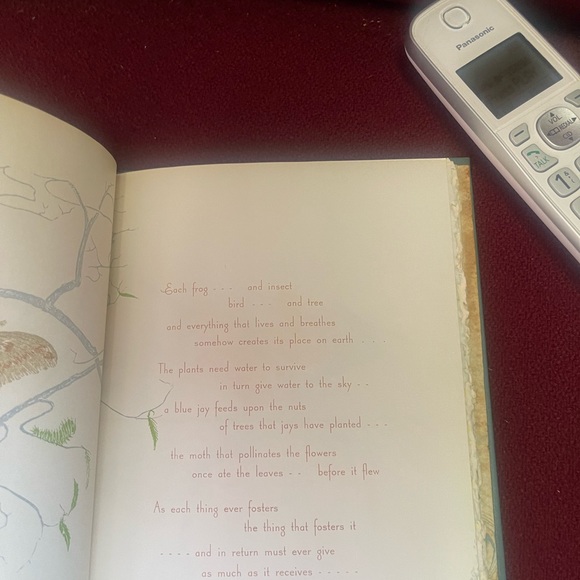 Panasonic
VOL
TALK
1
Each frog - - - and insect
bird - - - and tree
and everything that lives and breathes
somehow creates its place on earth . . .
The plants need water to survive
in turn give water to the sky - -
a blue jay feeds upon the nuts
of trees that jays have planted - - -
the moth that pollinates the flowers
once ate the leaves - - before it flew
As each thing ever fosters
the thing that fosters it
- - - - and in return must ever give
as much as it receives - - - - -